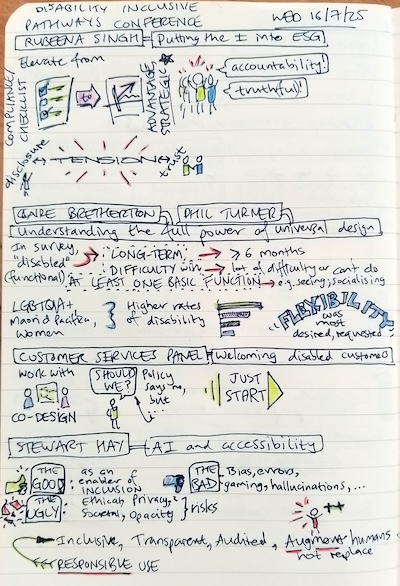 DISABILITY INCLUSIVE
PATHWAYS CONFERENCE
WED 16/7/25
RUBEENA SINGH
Putting the I into ESG
Elevate from
COMPLIANCE/
CHECKLIST
to
STRATEGIC
ADVANTAGE
accountability!
truth(ful)!
disclosure
TENSION
trust
BRETHERTON
PHIL TURNER
Understanding the full power of universal design
In survey,
"disabled"
(functional)
LONG-TERM
≥ 6 months
DIFFICULTY w/in
lot of difficulty or can't do
AT LEAST ONE BASIC FUNCTION
e.g. seeing, socialising
LGBTQIA+,
Māori, Pacifica,
women
Higher rates
of disability
FLEXIBILITY
was
most
desired, requested
CUSTOMER SERVICES PANEL
Welcoming disabled customers
Work with
CO-DESIGN
SHOULD
WE?
Policy
says no,
but
...
JUST
START
STEWART HAY
AI and accessibility
THE
GOOD
as an
enabler of
INCLUSION
THE
BAD
Bias, errors,
gaming, hallucinations, ...
THE
UGLY
Ethical, Privacy,
Societal, Opacity
risks
++
Inclusive, Transparent, Audited, Augment humans
not replace
RESPONSIBLE USE